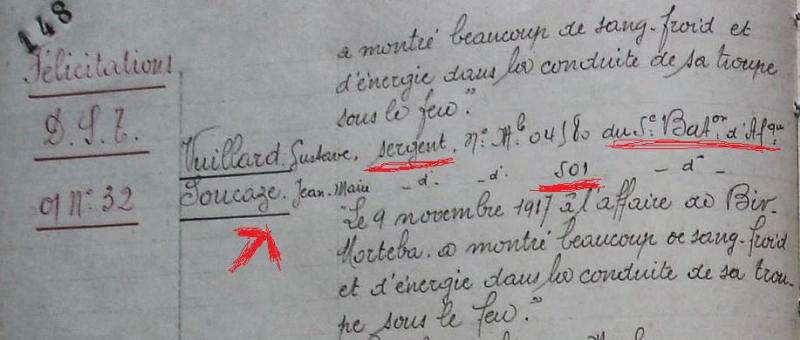 148
Félicitations
D.S.T.
O/ N° 32
a montré beaucoup de sang-froid et
d'énergie dans la conduite de sa troupe
sous le feu."
Vuillard. Gustave, sergent. n° Mle 04580 du 5e Baton d'Afque
Soucaze. Jean-Marie – d° – d° 501 – d° –
"Le 9 novembre 1917 à l'affaire de Bir-
Morteba. a montré beaucoup de sang-froid
et d'énergie dans la conduite de sa trou-
pe sous le feu."